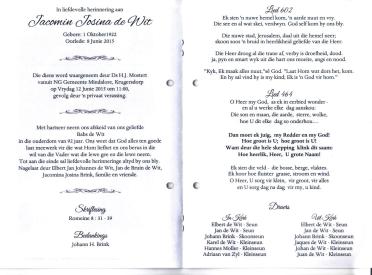 In liefdevolle herinnering aan
Jacomin Josina de Wit
Gebore: 1 Oktober 1922
Oorlede: 8 Junie 2015
Die diens word waargeneem deur Ds H.J. Mostert
vanuit NG Gemeente Mindalore, Krugersdorp
op Vrydag 12 Junie 2015 om 11:00,
gevolg deur 'n privaat verassing.
Met hartseer neem ons afskeid van ons geliefde
Babs de Wit
in die ouderdom van 92 jaar. Ons weet dat God alles ten goede
laat meewerk vir die wat Hom liefhet en ons berus in die
wil van die Vader wat die lewe gee en die lewe neem.
Tot aan die einde sal liefdevolle herinneringe altyd by ons bly.
Nagelaat deur Elbert Jan Johannes de Wit, Jan de Bruin de Wit,
Jacomina Josina Brink, familie en vriende.
Skriflesing
Romeine 8 : 31 - 39
Bedankings
Johann H. Brink
Lied 602
Ek sien 'n nuwe hemel kom, 'n aarde nuut en vry.
Die see en al wat skei, verdwyn. God self kom by ons bly.
Die nuwe stad, Jerusalem, daal uit die hemel neer;
skoon soos 'n bruid in heerlikheid geliefde van die Heer.
Die Heer droog al die trane af, verby is droefheid, dood,
ja, pyn en smart wyk uit die hart ons nuute, angs en nood.
"Kyk, Ek maak alles nuut," sê God. "Laat Hom wat dors het, kom.
En hy sal vind hy is my kind. Ek is 'n God vir hom."
Lied 464
O Heer my God, as ek in eerbied wonder
en al u werke elke dag aanskou:
Die son en maan, die aarde, sterre, wolke,
hoe U dit elke dag so onderhou.
Dan moet ek juig, my Redder en my God!
Hoe groot is U; hoe groot is U!
Want deur die hele skepping klink dit saam:
Hoe heerlik, Heer, U grote Naam!
Ek sien die veld - die bosse, berge, vlaktes.
Ek hoor hoe fluister grasse, stroom en wind.
O Heer, U sorg vir klein, vir groot, vir alles
en U sorg dag na dag vir my, u kind.
Draers
In Kerk
Elbert de Wit - Seun
Jan de Wit - Seun
Johann Brink - Skoonseun
Karel de Wit - Kleinseun
Hannes Moller - Kleinseun
Adriaan van Zyl - Kleinseun
Uit Kerk
Elbert de Wit - Seun
Jan de Wit - Seun
Johann Brink - Kleinseun
Jaques de Wit - Kleinseun
Johan de Wit - Kleinseun
Juan de Wit - Kleinseun